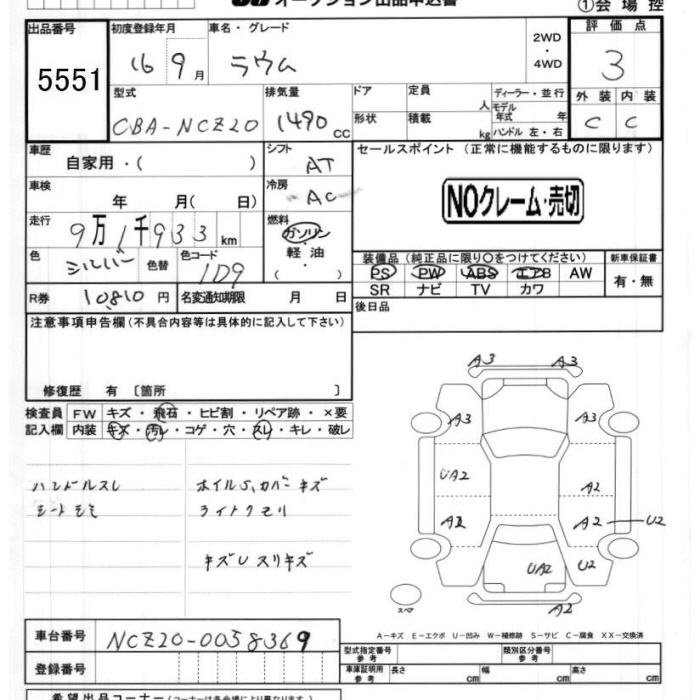 オークション出品申込書
①会場控
出品番号 初度登録年月 車名・グレード 2WD・4WD 評価点
5551 16 9月 ラウム 3
型式 排気量 ドア 定員 人 ディーラー・並行 外装 内装
CBA-NCZ20 1490 cc 形状 積載 kg モデル年式 年 ハンドル 左・右 C C
車歴 自家用・( ) シフト AT セールスポイント (正常に機能するものに限ります)
車検 年 月( 日) 冷房 AC NOクレーム・売切
走行 9万1千933km 燃料 ガソリン・軽油・( )
色 シルバー 色替 色コード 1D9 装備品 (純正品に限り○をつけてください) 新車保証書
PS PW ABS エアB AW 有・無
SR ナビ TV カワ
R券 10810円 名変通知期限 月 日 後日品
注意事項申告欄 (不具合内容等は具体的に記入して下さい)
修復歴 有 〔箇所 〕
検査員 FW キズ・飛石・ヒビ割・リペア跡・×要
記入欄 内装 キズ・汚レ・コゲ・穴・スレ・キレ・破レ
ハンドルスレ ホイルS,カバーキズ
シートモミ ライトクモリ
キズUスリキズ
A3 A3
A3 A3
UA2 A2
A2 A2 U2
UA2 U2
A2
スペア
A-キズ E-エクボ U-凹み W-補修跡 S-サビ C-腐食 XX-交換済
車台番号 NCZ20-0058369
型式指定番号 参考 類別区分番号 参考
登録番号 車庫証明用 参考 長さ cm 幅 cm 高さ cm
希望出品コーナー (コーナーは各会場により異なります)